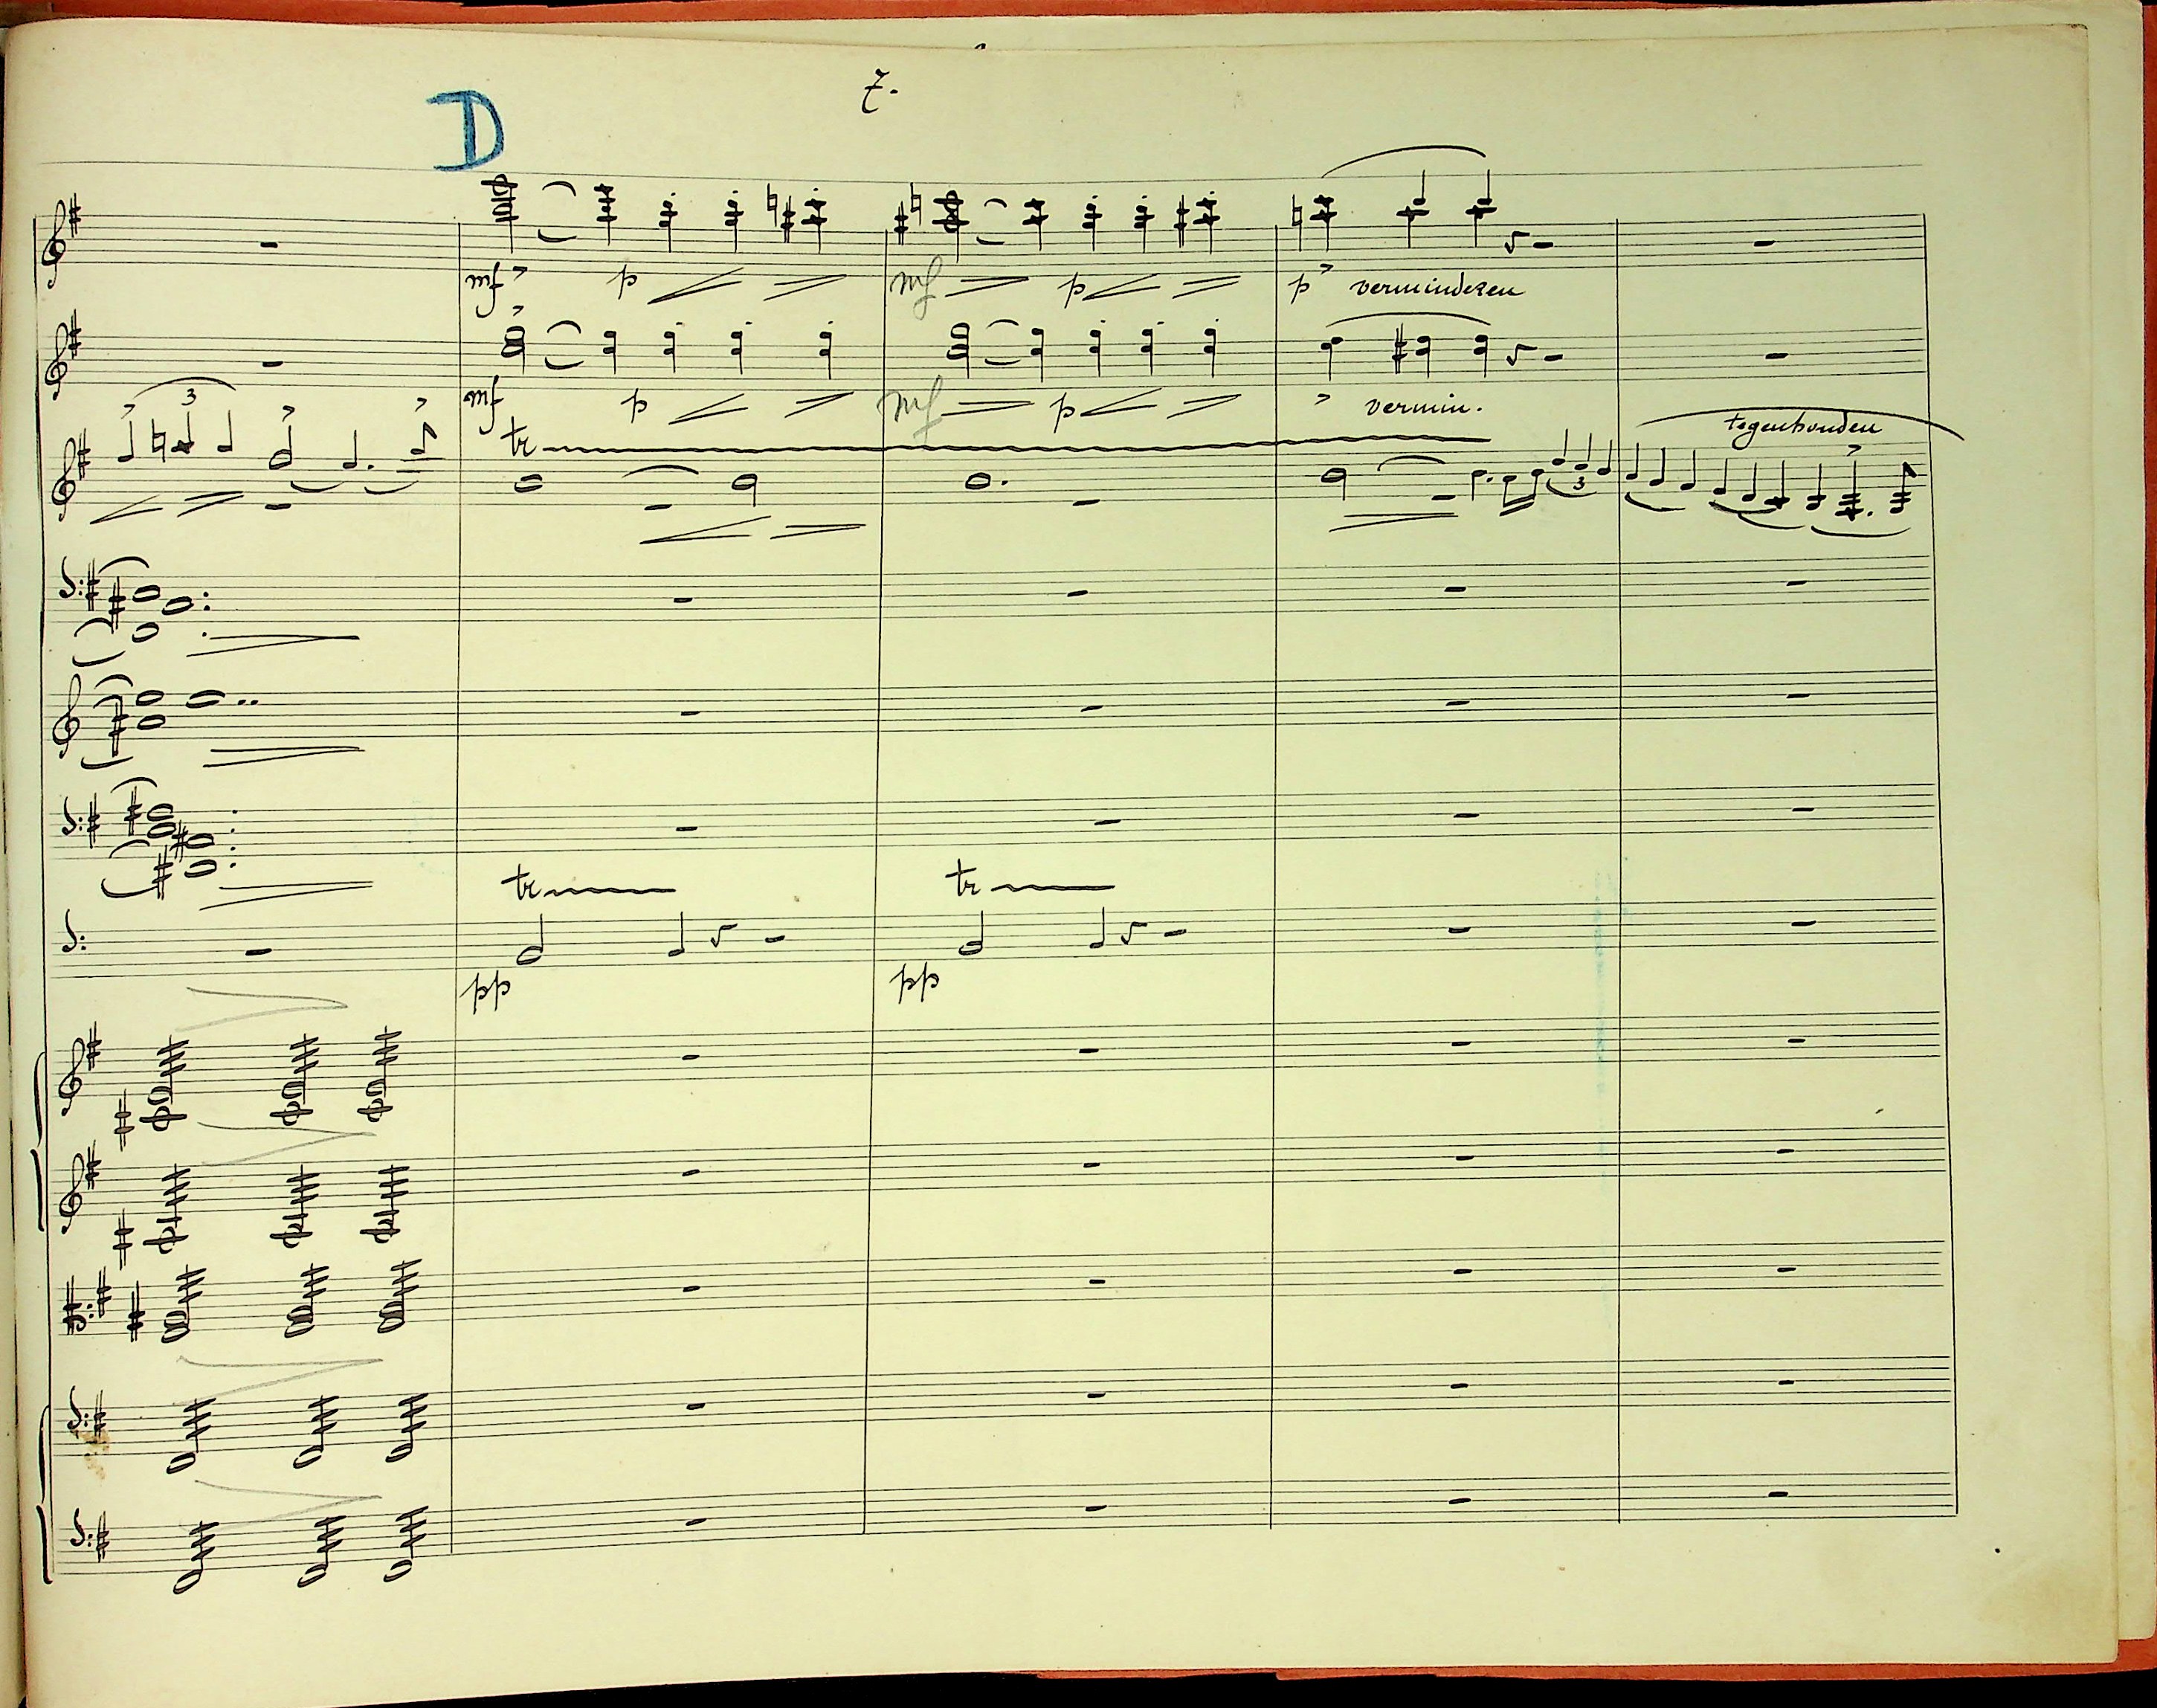 7.
D
mf p mf p p verminderen
mf p mf p vermin.
3
tr
tegenhouden
3
tr tr
pp pp